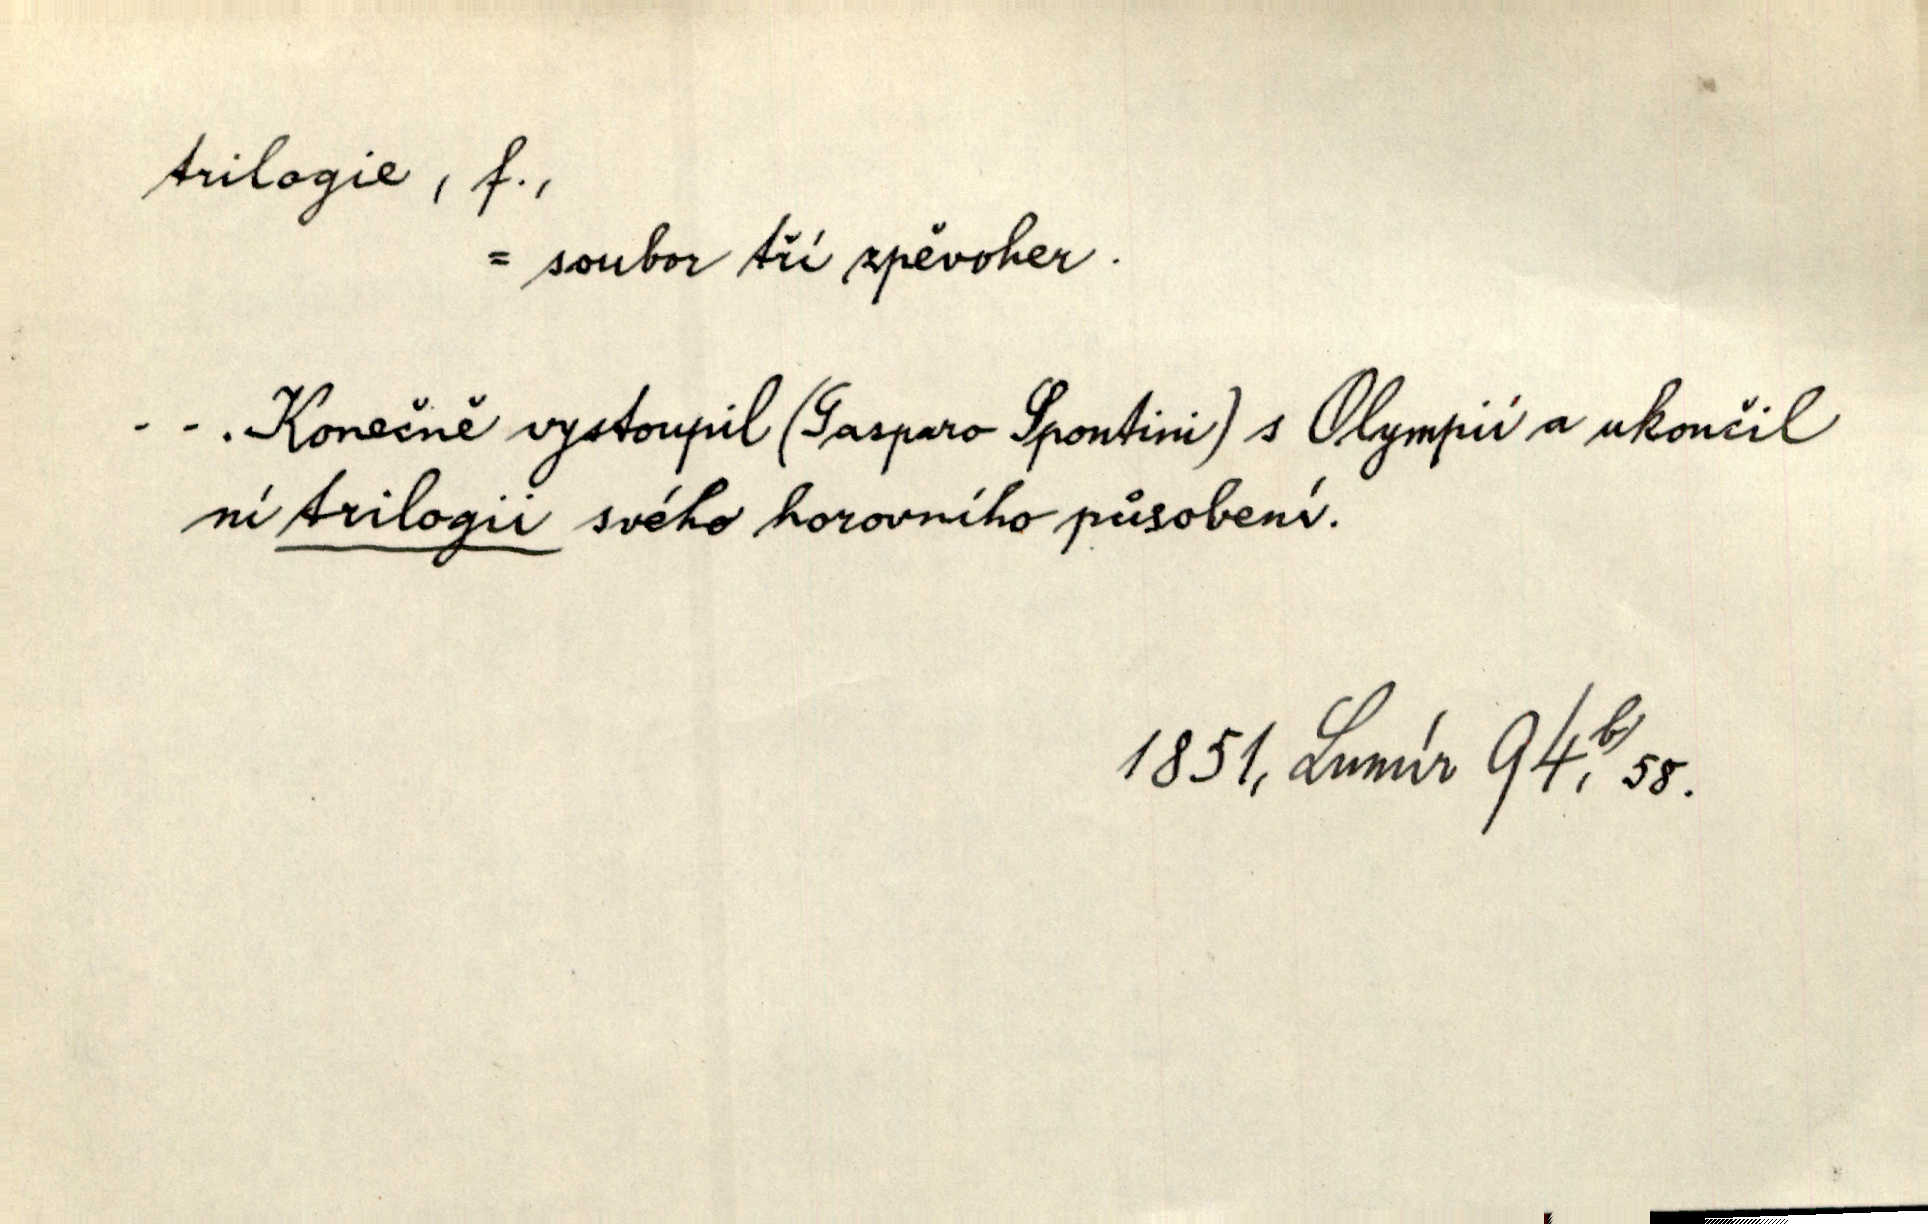 trilogie, f.,
= soubor tří zpěvoher.
... Konečně vystoupil (Gasparo Spontini) s Olympií a ukončil
ní trilogii svého horovního působení.
1851, Lumír 94,b) 58.